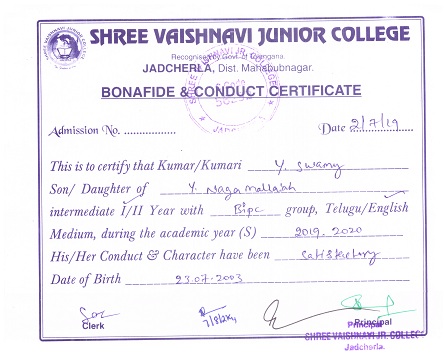 SHREE VAISHNAVI JUNIOR COLLEGE
Recognised by Govt. of Telangana
JADCHERLA, Dist. Mahabubnagar.
BONAFIDE & CONDUCT CERTIFICATE
Admission No. .................. Date 2/7/19
This is to certify that Kumar/Kumari Y. Swamy
Son/ Daughter of Y. Nagamallaiah
intermediate I/II Year with Bipc group, Telugu/English
Medium, during the academic year (S) 2019. 2020
His/Her Conduct & Character have been Satisfactory
Date of Birth 23.07.2003
Clerk
Principal
Principal
SHREE VAISHNAVI JR. COLLEGE
Jadcherla.